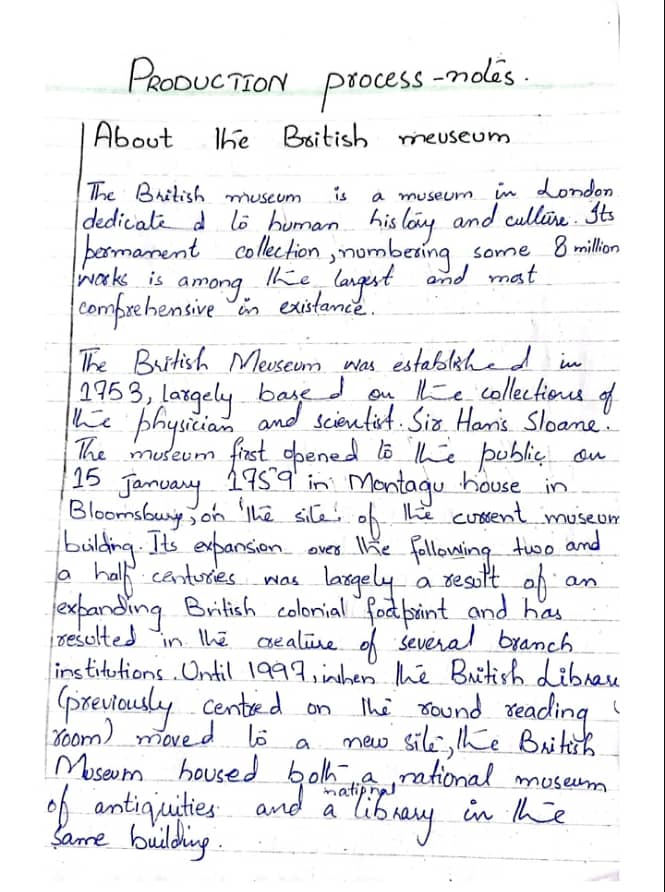 PRODUCTION process-notes.
About the British meuseum
The British museum is a museum in London
dedicate d to human history and culture. Its
permament collection, numbering some 8 million
works is among the largest and most
comprehensive in existance.
The British Meuseum was established in
1753, largely based on the collections of
the physician and scientist. Sir Hans Sloane.
The museum first opened to the public on
15 january 1759 in Montagu house in
Bloomsbury, on the site of the current museum
building. Its expansion over the following two and
a half centuries was largely a result of an
expanding British colonial footprint and has
resulted in the creature of several branch
institutions. Until 1997, when the British Librar
(previously centred on the round reading
room) moved to a new site, the British
Museum housed both a national museum
of antiquities and a national library in the
same building.